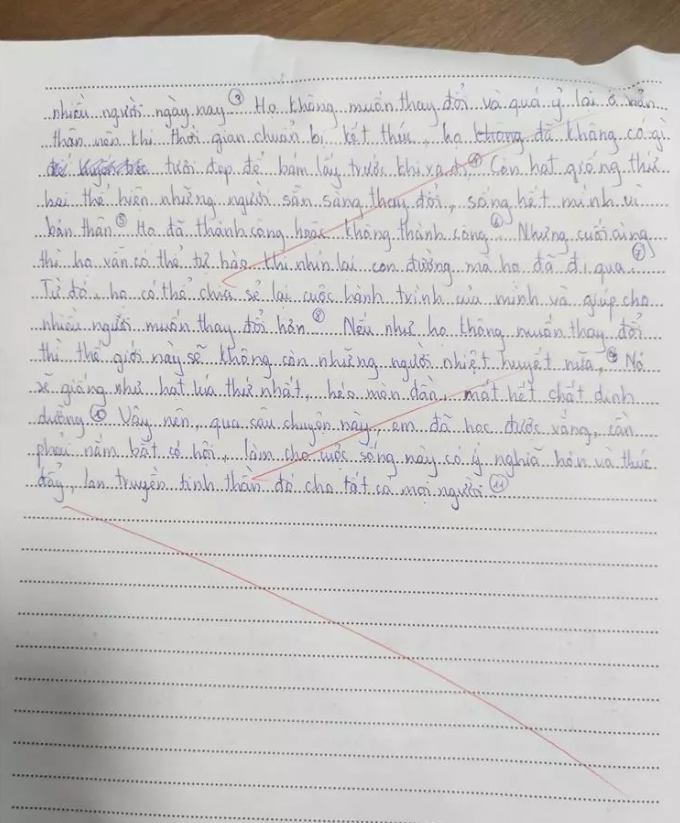 nhiều người ngày nay ③ Họ không muốn thay đổi và quá ỷ lại ở bản
thân nên khi thời gian chuẩn bị kết thúc, họ không đã không có gì
tươi đẹp để bám lấy trước khi xa ④ Còn hạt giống thứ
hai thể hiện những người sẵn sàng thay đổi, sống hết mình vì
bản thân ⑤ Họ đã thành công hoặc không thành công ⑥ Nhưng cuối cùng
thì họ vẫn có thể tự hào khi nhìn lại con đường mà họ đã đi qua ⑦
Từ đó, họ có thể chia sẻ lại cuộc hành trình của mình và giúp cho
nhiều người muốn thay đổi hơn ⑧ Nếu như họ không muốn thay đổi
thì thế giới này sẽ không còn những người nhiệt huyết nữa ⑨ Nó
sẽ giống như hạt lúa thứ nhất, héo mòn dần, mất hết chất dinh
dưỡng ⑩ Vậy nên, qua câu chuyện này, em đã học được vằng, cần
phải nắm bắt cơ hội, làm cho cuộc sống này có ý nghĩa hơn và thúc
đẩy, lan truyền tinh thần đó cho tất cả mọi người ⑪